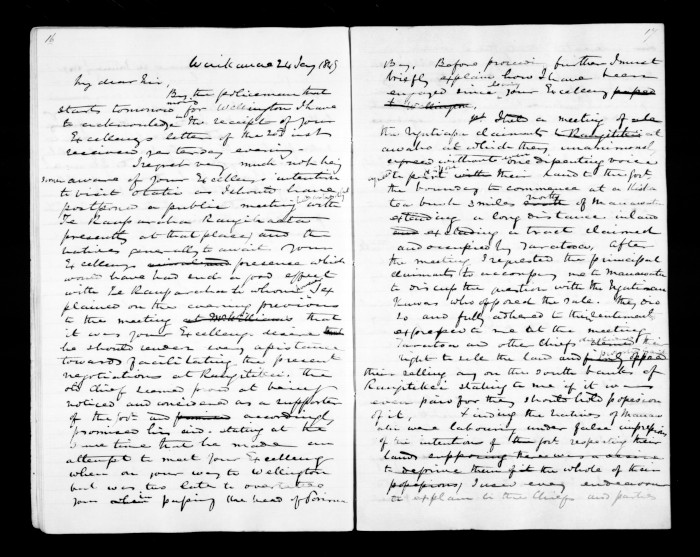 16
Waikanae 24 Jany 1849
My dear Sir,
By the policeman that
starts tomorrow morng for Wellington I have
to acknowledge the receipt of your
Excellency's letter of the 22d inst
received yesterday evening.
I regret very much not being
aware of your Excellency's intention
to visit Otaki as I should have
postponed a public meeting with
Te Rauparaha Rangihaeata
presently at that place, and the
natives generally to await your
Excellency presence which
would have had such a good effect
with Te Rauparaha to whom I ex
plained on the evening previous
to the meeting at that
it was your Excellency desire that
he should render every assistance
towards facilitating the present
negotiations at Rangitikei. The
old Chief seemed proud at being
noticed and considered as a supporter
of the govt. and promised accordingly
promised his aid. stating at the
same time that he made an
attempt to meet your Excellency
when on your way to Wellington
but was too late to overtake
you when passing the head of Porirua
17
Bay. Before proceeding further I must
briefly explain how I have been
engaged since your Excellency passed
to Wellington.
I had a meeting of all
the Ngatiapa claimants to Rangitikei at
awahou at which they unanimously
agreed without one dissenting voice
to part with their land to the govt.
the boundary to commence at
3 miles north of Manawatu
extending a long distance inland
and excluding a tract claimed
and occupied by Taratoa. After
the meeting I requested the principal
claimants to accompany me to Manawatu
to discuss the question with the Ngatiraukawa
who opposed the sale. They did
so and fully adhered to the sentiments
expressed to me at the meeting
Taratoa and other Chiefs denied their
right to sell the land and
their selling any on the south bank of
Rangitikei stating to me if it was
even paid for they should hold possession
of it. Finding the Natives of Manawa
tu were labouring under false impressions
of the intention of the govt. respecting their
lands supposing there was a desire
to deprive them of the whole of their
possessions, I used every endeavour
to explain to the Chiefs and parties